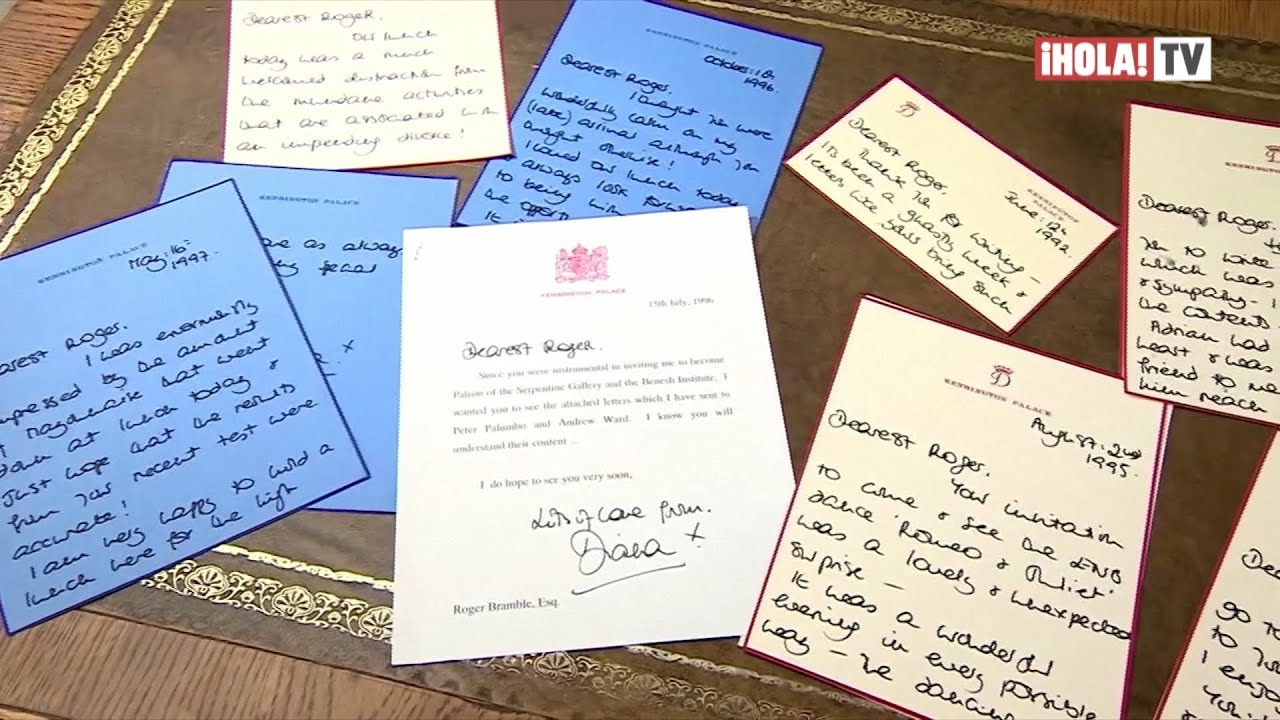 ¡HOLA! TV
Dearest Roger.
Our lunch
today was a much
welcomed distraction from
the mundane activities
that are associated with
an impending divorce!
KENSINGTON PALACE
October: 1
1996.
Dearest Roger.
I thought you were
wonderfully calm on my
(late) arrival although you
thought otherwise!
I loved our lunch today
always look forward
to being with
the opport
It is
D
KENSINGTON
PALACE
June: 12
1992.
Dearest Roger.
Thank you for writing -
It's been a ghastly week &
letters like yours bring such
KENSINGTON
Dearest Roger.
You to write
which was
& sympathy - I
the contents
Adrian had
heart & was
friend to ma
him reach
KENSINGTON PALACE
as always
KENSINGTON PALACE
May: 16
1997.
earest Roger.
I was enormously
mpressed by the amount
of mayonnaise that went
down at lunch today &
just hope that the results
from your recent test were
accurate!
I am very happy to hold a
lunch here for the high
KENSINGTON PALACE
15th July, 1996
Dearest Roger.
Since you were instrumental in inviting me to become
Patron of the Serpentine Gallery and the Benesh Institute, I
wanted you to see the attached letters which I have sent to
Peter Palumbo and Andrew Ward. I know you will
understand their content ...
I do hope to see you very soon,
Lots of love from.
Diana x
Roger Bramble, Esq.
D
KENSINGTON PALACE
August: 2nd
1995.
Dearest Roger.
Your invitation
to come & see the ENB
dance 'Romeo & Juliet'
was a lovely & unexpected
surprise -
It was a wonderful
evening in every possible
way - the dancing
Dearest
go to
to
I enjo